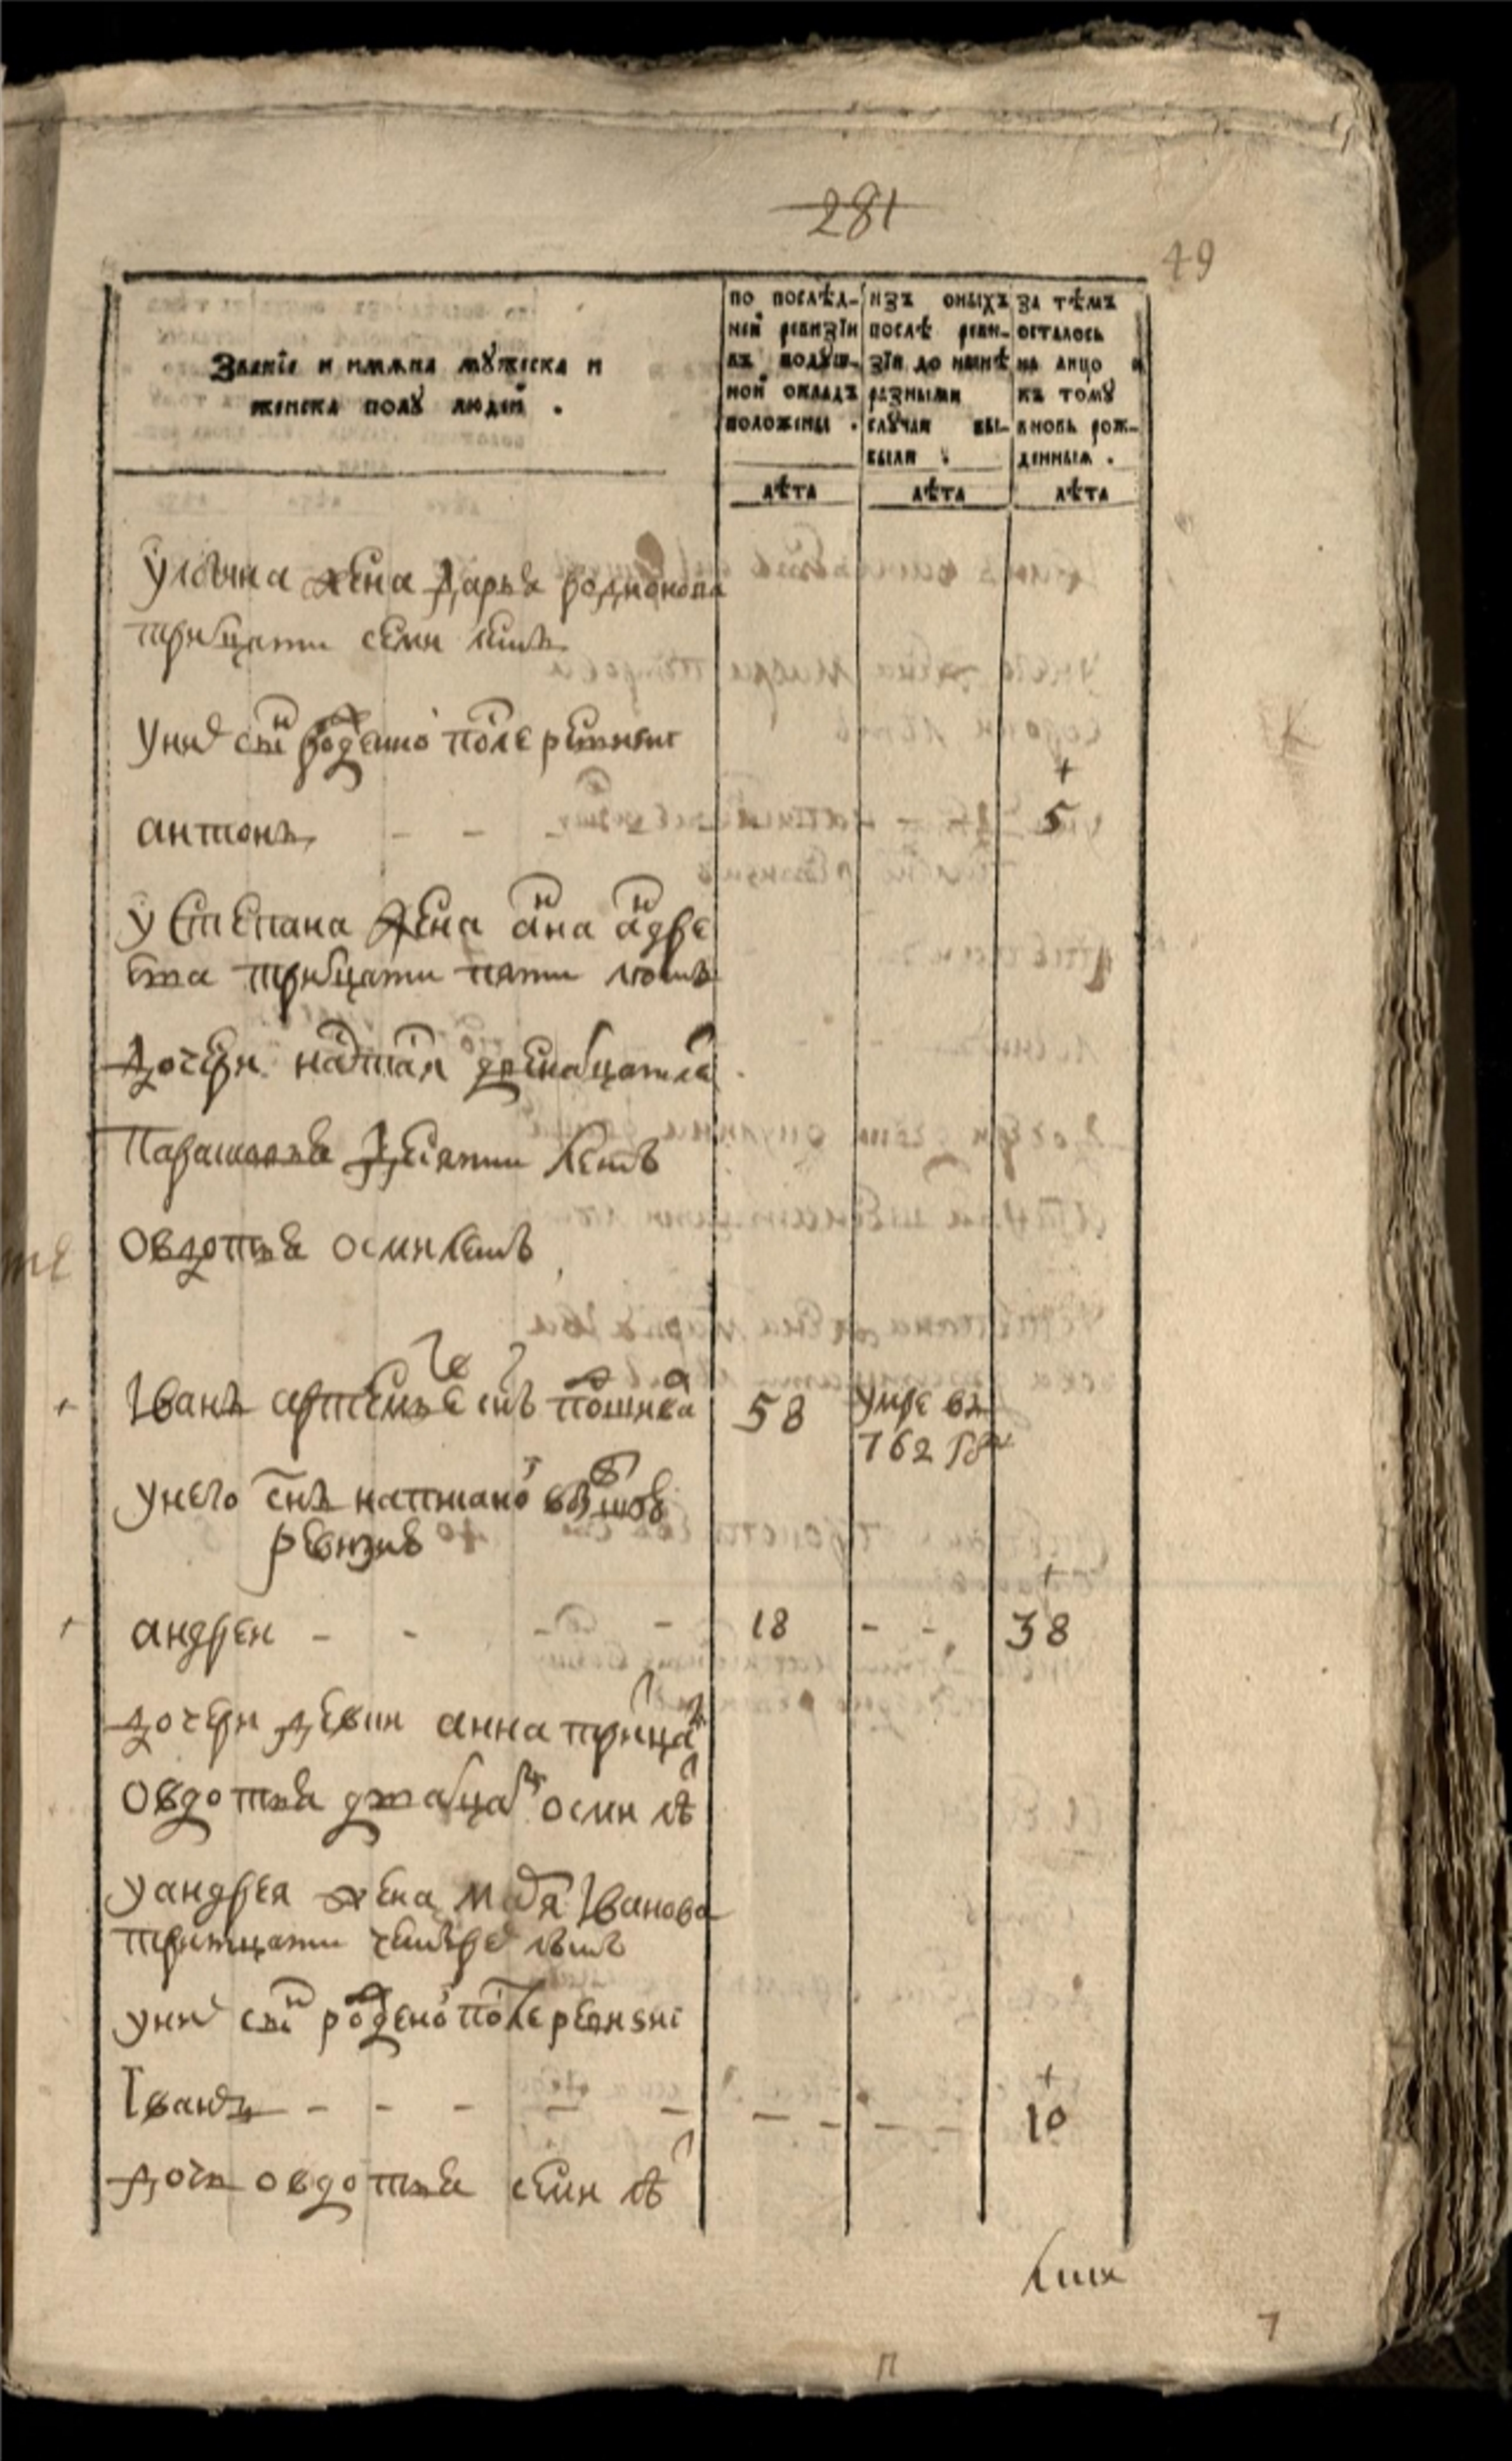 281
49
Званїе и имѧна мꙋжеска и
женска полꙋ людей .
по послѣд-
ней ревизїи
въ подꙋш-
ной окладъ
положены .
изъ оныхъ
послѣ реви-
зїи до нынѣ
разными
слꙋчаи вы-
были .
за тѣмъ
осталось
на лицо и
къ томꙋ
вновь рож-
денныѧ .
лѣта
лѣта
лѣта
жена Дарья родионова
тридцати семи летъ
у нихъ снъ рожденно после
антонъ - - - 5
у Степана жена анна андре
ева тритцати пяти летъ
дочери наталья
Парасковья Десяти летъ
Овдотья осми летъ
Iванъ артемьевъ снъ 58 умре въ
762 годꙋ
у него снъ написанно в
ревизие
андреи - - - - 18 - - 38
дочери девки анна трицати
Овдотья дватцати осми лѣ
у андрея жена Iванова
тритцати четырехъ летъ
у нихъ снъ рожденно после ревизиї
Iванъ - - - - - - - - - 10
дочь овдотья семи лѣ
7
П